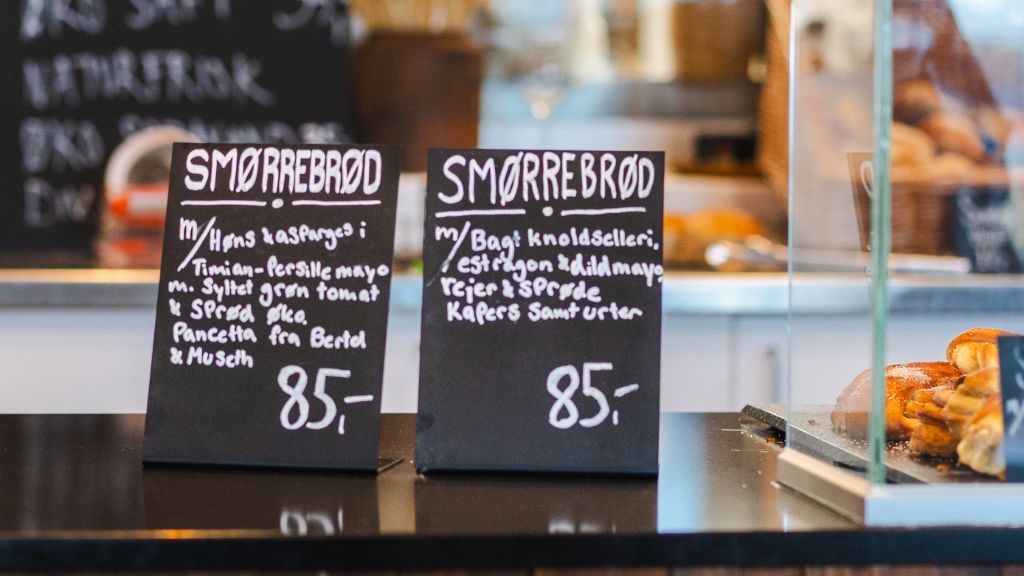 NATURFRISK
ØKO
SMØRREBRØD
m/Høns & asparges i
Timian-Persille mayo
m. Syltet grøn tomat
& Sprød øko.
Pancetta fra Bertel
& Museth
85,-
SMØRREBRØD
m/Bagt knoldselleri,
estragon & dildmayo,
rejer & sprøde
Kapers Samt urter
85,-